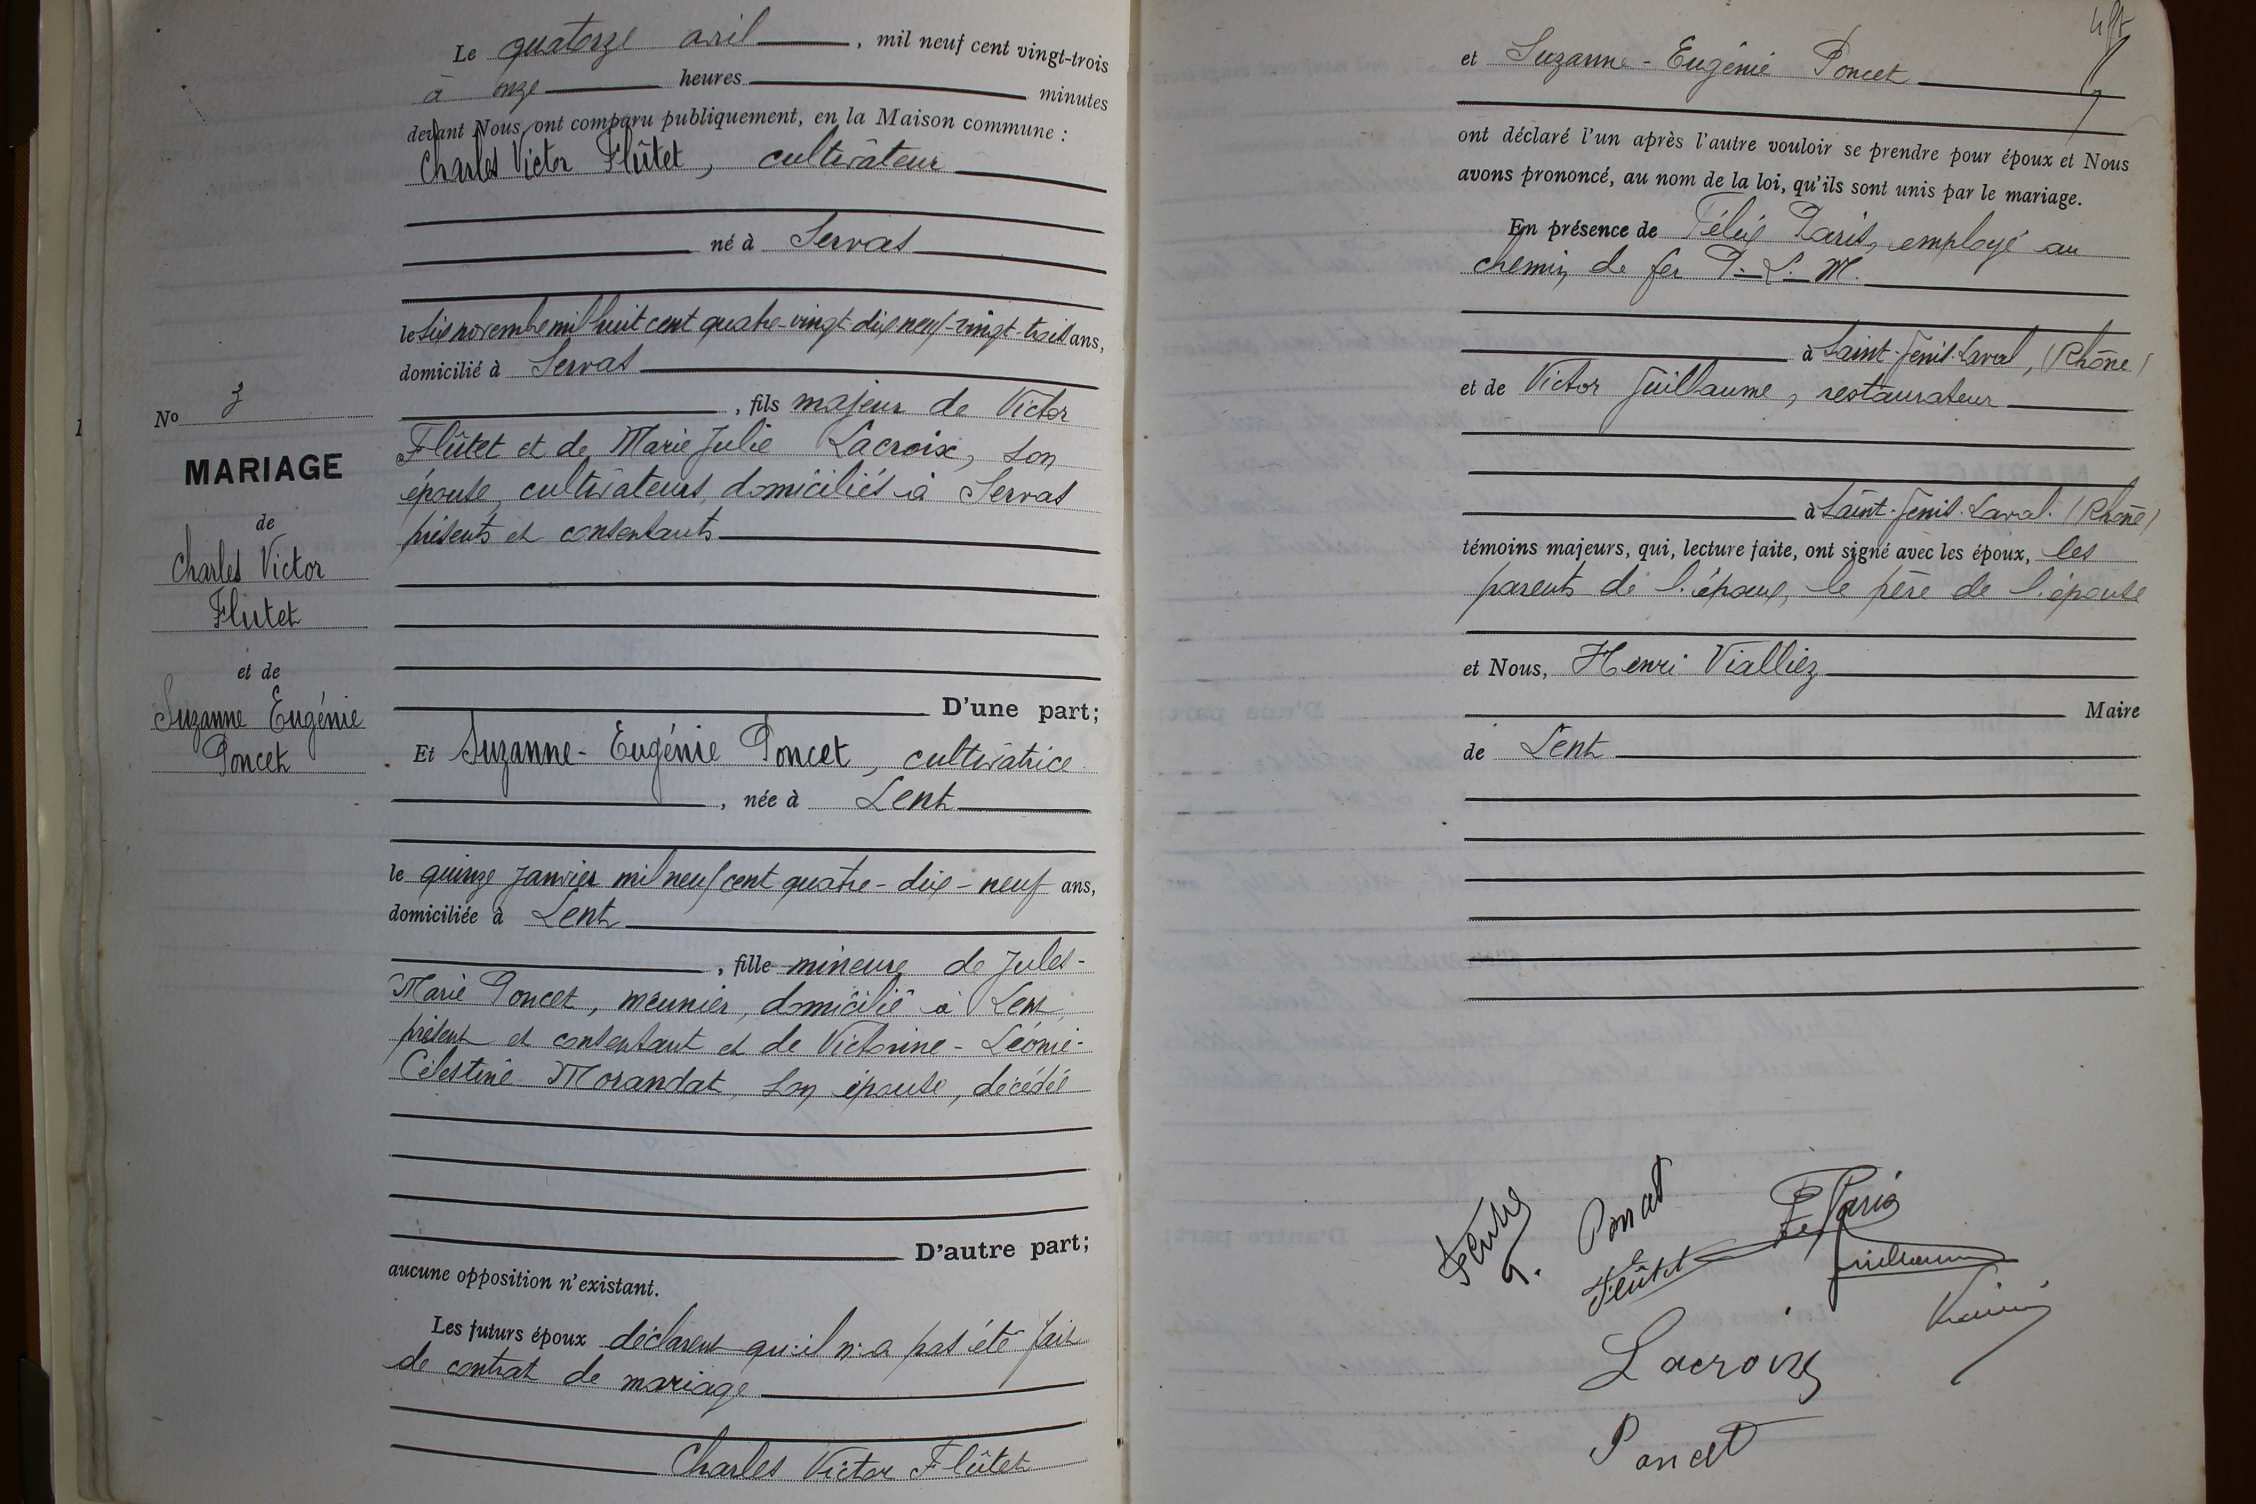 Le quatorze avril, mil neuf cent vingt-trois
à onze heures minutes
devant Nous ont comparu publiquement, en la Maison commune :
Charles Victor Flûtet, cultivateur
né à Servas
le six novembre mil huit cent quatre-vingt dix neuf - vingt-trois ans,
domicilié à Servas
, fils majeur de Victor
Flûtet et de Marie Julie Lacroix, son
épouse, cultivateurs, domiciliés à Servas
présents et consentants
No 3
MARIAGE
de
Charles Victor
Flûtet
et de
Suzanne Eugénie
Poncet
D'une part;
Et Suzanne-Eugénie Poncet, cultivatrice
, née à Lent
le quinze janvier mil neuf cent quatre - dix-neuf ans,
domiciliée à Lent
, fille mineure de Jules-
Marie Poncet, meunier, domicilié à Lent,
présent et consentant et de Victorine-Léonie-
Célestine Morandat, son épouse, décédée
D'autre part;
aucune opposition n'existant.
Les futurs époux déclarent qu'il n'a pas été fait
de contrat de mariage
Charles Victor Flûtet
et Suzanne-Eugénie Poncet
ont déclaré l'un après l'autre vouloir se prendre pour époux et Nous
avons prononcé, au nom de la loi, qu'ils sont unis par le mariage.
En présence de Félix Paris, employé au
chemin de fer P.-L.-M.
à Saint-Genis-Laval, (Rhône)
et de Victor Guillaume, restaurateur
à Saint-Genis-Laval. (Rhône)
témoins majeurs, qui, lecture faite, ont signé avec les époux, les
parents de l'époux, le père de l'épouse
et Nous, Henri Vialliez
Maire
de Lent
Poncet
Fe Paris
Flûtet
Guillaume
Lacroix
Poncet